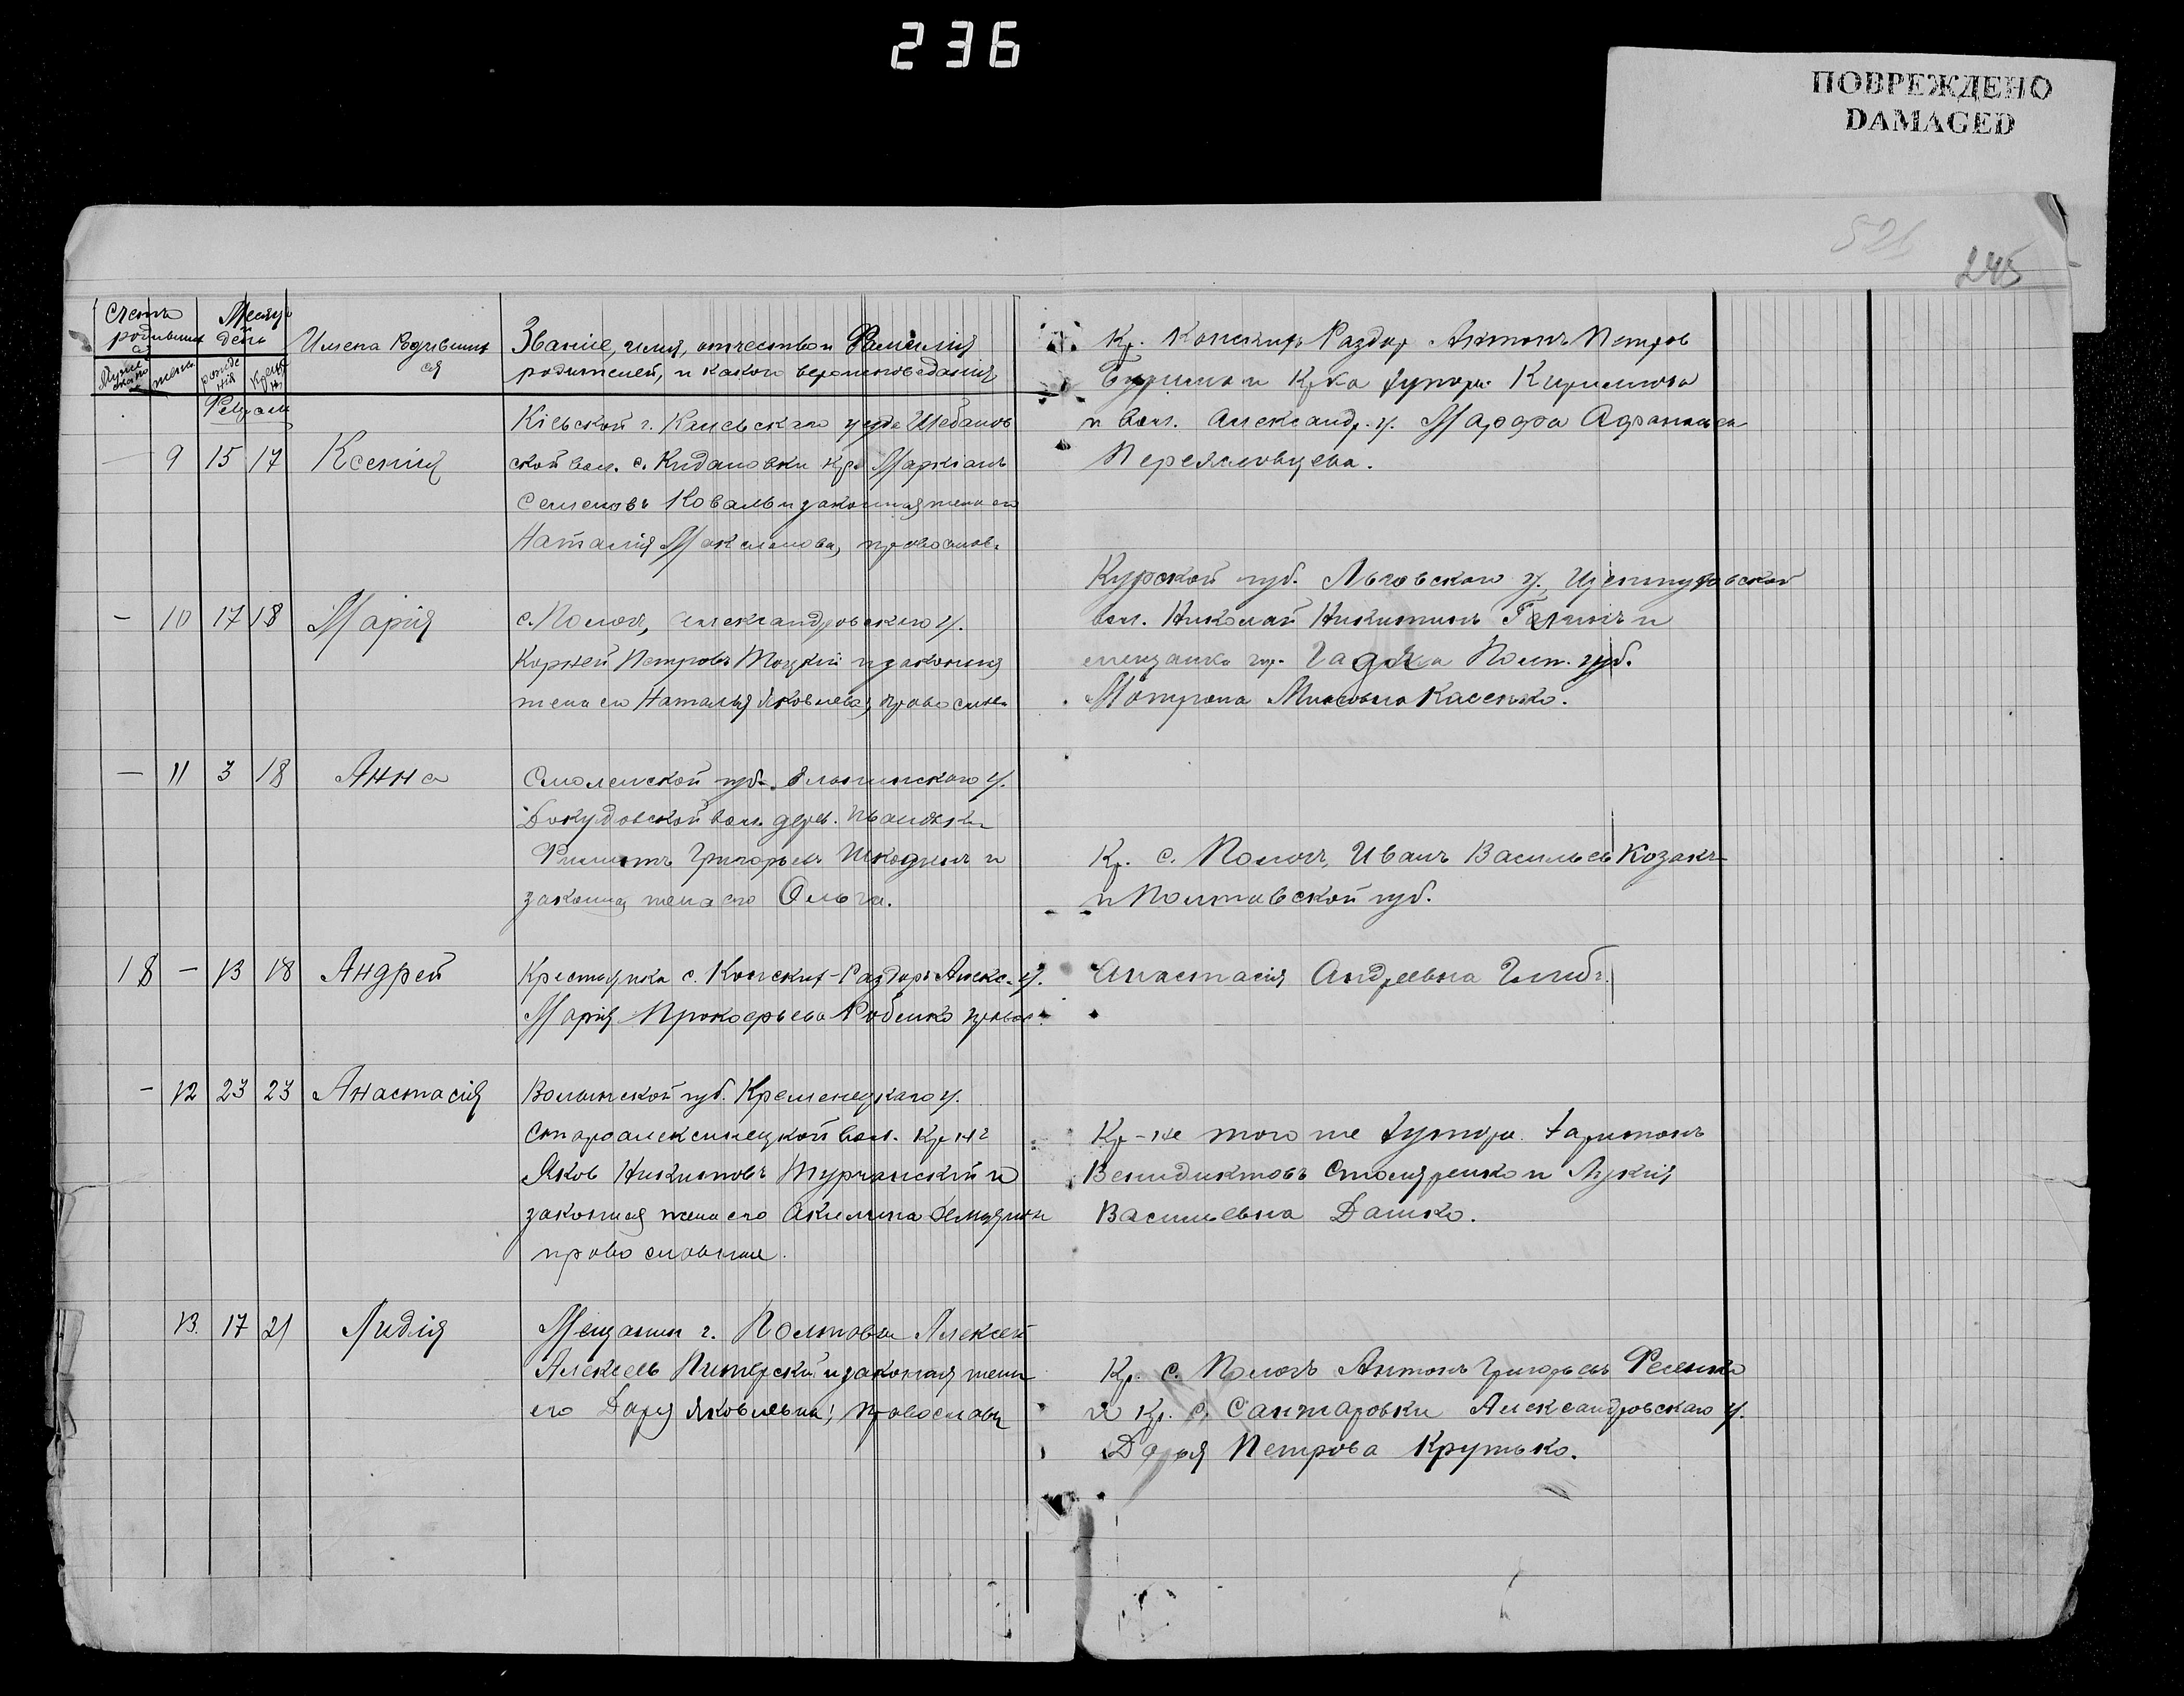 236
ПОВРЕЖДЕНО
DAMAGED
521
245
Счетъ родившихся
Мѣсяцъ день
Имена Родившихся
Званіе, имя, отчество и Фамилія
родителей, и какого вероисповеданія
Мужескаго
женс
рожденія
крещен
Февраль
9 15 17 Ксенія
Кіевской г. Каневскаго уезда Шебанов
ской вол. с. Кидановки Кр. Маркіанъ
Семеновъ Коваль и законная жена его
Наталія Максимова, православ.
Кр. Конскихъ Раздор Антонъ Петров
и Кр-ка хутора Кирилловка
и вол. Александр. у. Марфа
— 10 17 18 Марія
с. Пологъ, Александровскаго у.
Корней Петровъ Тоцкій и законная
жена его Наталья Яковлева, православн
Курской губ. Льговскаго у.
вол. Николай Никитинъ и
мещанка гор. Гадяча Полт. губ.
Мотрона
— 11 3 18 Анна
Смоленской губ. Ельнинскаго у.
вол. дерев.
Филиппъ Григорьевъ и
законная жена его Ольга.
Кр. с. Пологъ, Иванъ Васильевъ Козакъ
и Полтавской губ.
Анастасія Андреевна
18 — 13 18 Андрей
Крестьянка с. Конских-Раздоръ Алекс. у.
Марія Прокофьева правос.
— 12 23 23 Анастасія
Волынской губ. Кременецкаго у.
Староалексинецкой вол. Кр-нъ
Яков Никитовъ Турчанскій и
законная жена его Акилина
православные.
Кр-не того же хутора Харитонъ
Венидиктовъ Столяренко и Лукія
Васильевна Дашко.
13. 17 21 Лидія
Мещанин г. Полтавы Алексей
Алексеевъ Питерскій и законная жена
его Дарья Яковлевна, православн
Кр. с. Пологъ Антонъ Григорьевъ
и Кр. с. Санжаровки Александровскаго у.
Дарья Петрова Крутько.